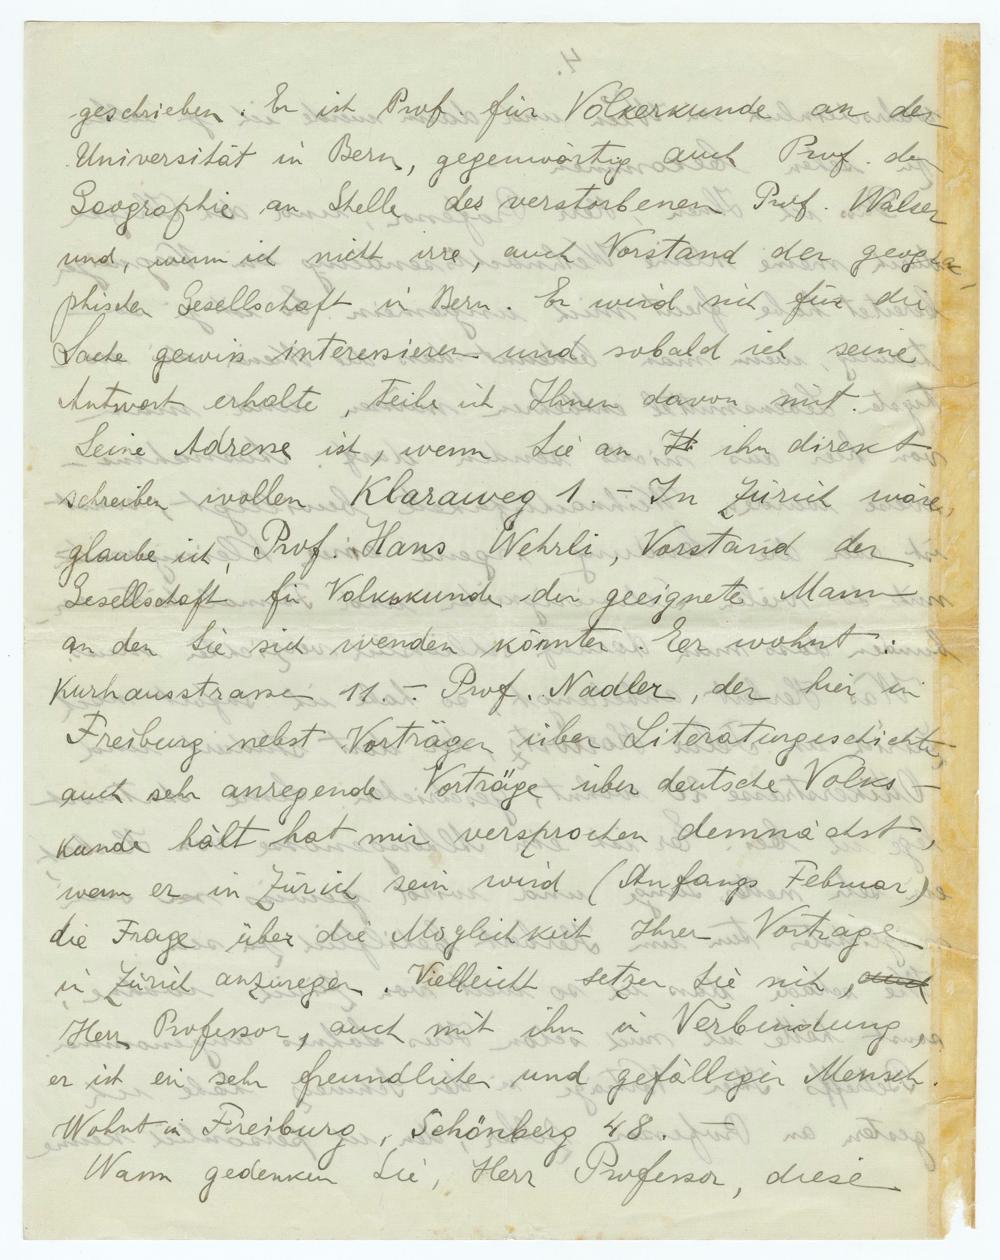 geschrieben. Er ist Prof für Völkerkunde an der
Universität in Bern, gegenwärtig auch Prof. der
Geographie an Stelle des verstorbenen Prof. Walser
und, wenn ich nicht irre, auch Vorstand der geogra-
phischen Gesellschaft in Bern. Er wird sich für die
Sache gewiss interessieren und sobald ich seine
Antwort erhalte, teile ich Ihnen davon mit.
Seine Adresse ist, wenn Sie an ihn direkt
schreiben wollen Klaraweg 1. – In Zürich wäre,
glaube ich, Prof. Hans Wehrli, Vorstand der
Gesellschaft für Volkskunde der geeignete Mann
an den Sie sich wenden könnten. Eer wohnt:
Kurhausstrasse 11. – Prof. Nadler, der hier in
Freiburg nebst Vorträgen über Literaturgeschichte,
auch sehr anregende Vorträge über deutsche Volks-
kunde hält hat mir versprochen demnächst,
wenn er in Zürich sein wird (Anfangs Februar)
die Frage über die Möglichkeit Ihrer Vorträge
in Zürich anzuregen. Vielleicht setzen Sie sich, auch
Herr Professor, auch mit ihm in Verbindung,
er ist ein sehr freundlicher und gefälliger Mensch.
Wohnt in Freiburg, Schönberg 48. –
Wann gedenken Sie, Herr Professor, diese